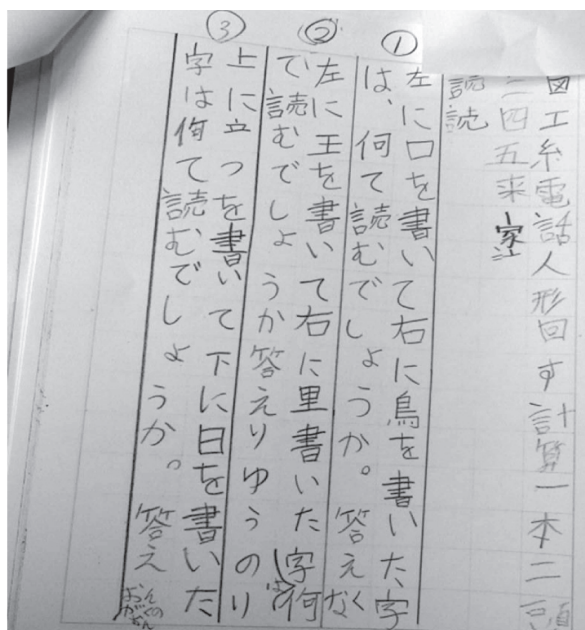 図工糸電話人形回す計算一本二頭
三四五来家
読読
①
左に口を書いて右に鳥を書いた字
は、何て読むでしょうか。答えなく
②
左に王を書いて右に里書いた字何
で読むでしょうか答えりゆうのり
③
上に立つを書いて下に日を書いた
字は何て読むでしょうか。答え
おんがくのおん